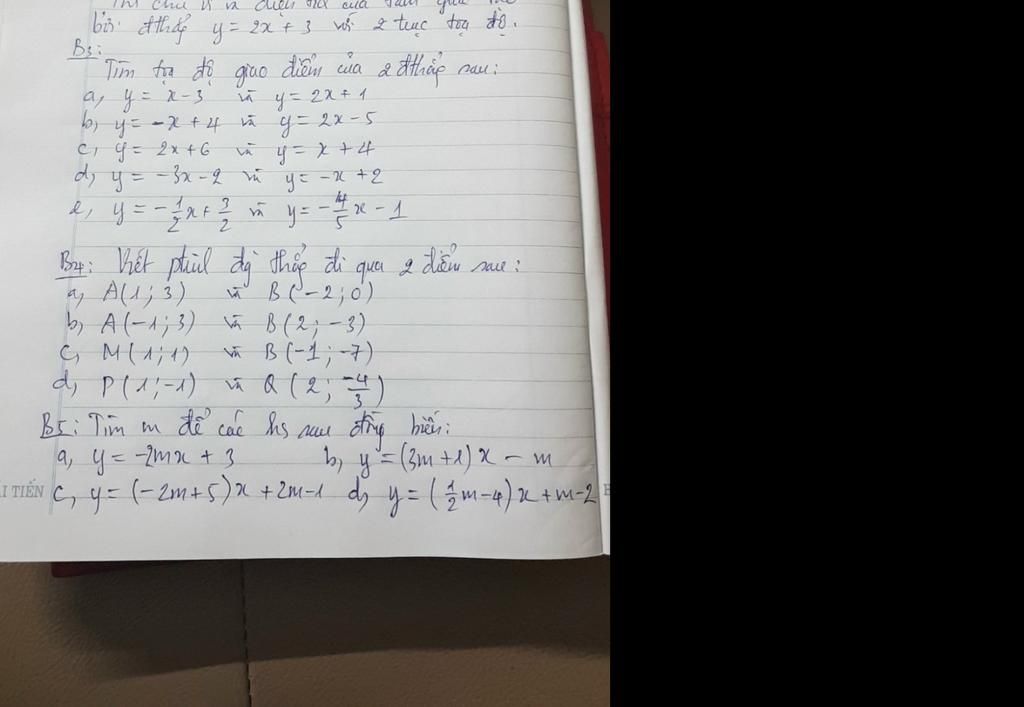 Tính chu vi và diện tích của tam giác
bởi đthẳg y = 2x + 3 với 2 trục toạ độ.
B3:
Tìm toạ độ giao điểm của 2 đthẳg sau:
a, y = x - 3 và y = 2x + 1
b, y = -x + 4 và y = 2x - 5
c, y = 2x + 6 và y = x + 4
d, y = -3x - 2 và y = -x + 2
e, y = -1/2x + 3/2 và y = -4/5x - 1
B4: Viết ptrìh đg thẳg đi qua 2 điểm sau:
a, A(1; 3) và B(-2; 0)
b, A(-1; 3) và B(2; -3)
c, M(1; 1) và B(-1; -7)
d, P(1; -1) và Q(2; -4/3)
B5: Tìm m để các hs sau đồng biến:
a, y = -2mx + 3 b, y = (3m+1)x - m
c, y = (-2m+5)x + 2m-1 d, y = (1/2m-4)x + m-2
ẢI TIẾN